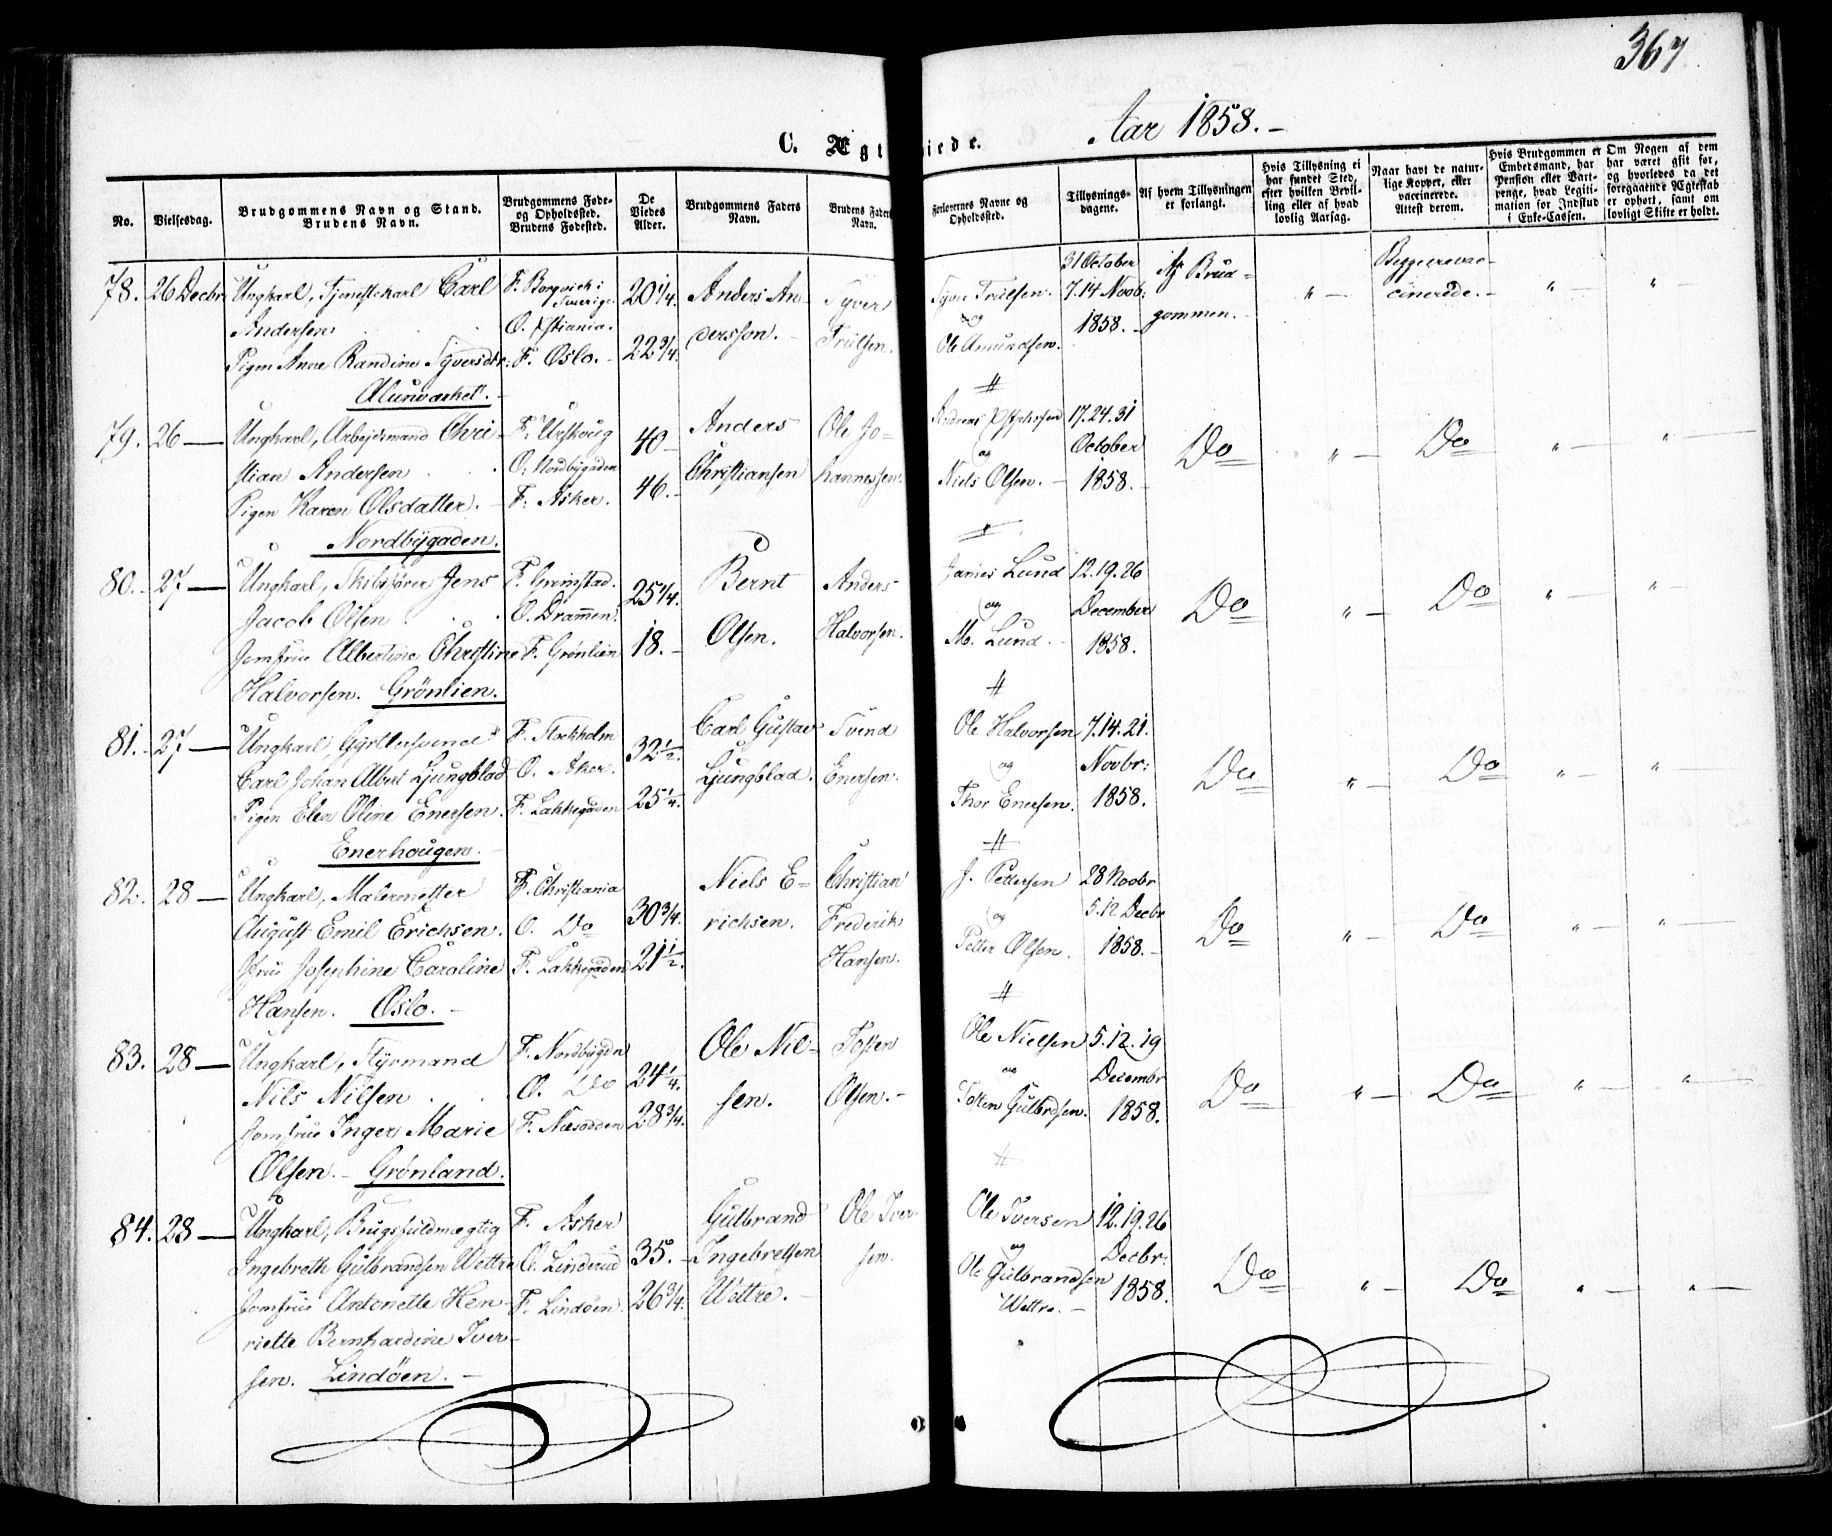 367
C. Ægt iede. Aar 1858.-
No. Vielsesdag. Brudgommens Navn og Stand. Brudens Navn. Brudgommens Føde- og Opholdssted. Brudens Fødested. De Viedes Alder. Brudgommens Faders Navn. Brudens Faders Navn. Forlovernes Navne og Opholdssted. Tillysnings-dagene. Af hvem Tillysningen er forlangt. Hvis Tillysning ei har fundet Sted, efter hvilken Bevilling eller af hvad lovlig Aarsag. Naar havt de naturlige Kopper, eller vaccinerede. Attest derom. Hvis Brudgommen er Embedsmand, har Pension eller Vartpenge, hvad Legitimation for Indskud i Enke-Cassen. Om Nogen af dem har været gift før, og hvorledes da det foregaaende Ægteskab er ophørt, samt om lovligt Skifte er holdt.
78. 26 Decbr Ungkarl, Tjenestekarl Carl F. Borgvick i Sverige 20 1/4. Anders An- Syver Syver Trulsen. 31 October Af Brud- " - Begge vac- " - " -
Andersen O. Xstiania. dersson. - Trulsen. og 7.14 Novb: gommen. cinerede. -
Pigen Anne Randine Syversdtr: F. Oslo. - 22 3/4. Ole Amundsen. 1858. -
Alunværket. -
79. 26 — Ungkarl, Arbejdsmand Chri- F. Urskoug 40 - Anders Ole Jo- Andreas 17.24.31 Do " - Do " - " -
stian Andersen O. Nordbygaden Christiansen hannessen. og October
Pigen Karen Olsdatter. - F. Asker. 46. - Niels Olsen. - 1858. -
Nordbygaden.
80. 27 — Ungkarl, Skibsfører Jens F. Grimstad. 25 1/4. Bernt Anders James Lund 12.19.26 Do " - Do " - " -
Jacob Olsen O. Drammen. Olsen. Halvorsen. og December
Jomfrue Albertine Christine F. Grønlien 18. - M. Lund. 1858.
Halvorsen. Grönlien.
81. 27 — Ungkarl Gjørtlersvend F. Stockholm 32 1/2. Carl Gustav Svend Ole Halvorsen 7.14.21. Do " - Do " - " -
Carl Johan Albert Ljungblad O. Aker. Ljungblad. Enersen. og Novbr:
Pigen Elen Oline Enersen. F. Lakkegaden 25 1/4. Thor Enersen. 1858.
Enerhougen. -
82. 28 — Ungkarl, Malermester F. Christiania 30 3/4. Niels E- Christian J. Pettersen 28 Novbr Do " - Do " - " -
August Emil Erichsen. O. Do richsen. Frederik og 5.12 Decbr
Jfrue Josephine Caroline F. Lakkegaden 21 1/2. Hansen. Petter Olsen. 1858. -
Hansen. Oslo. -
83. 28 — Ungkarl, Styrmand F. Nordbygdn 24 1/4. Ole Nil- Tosten Ole Nielsen 5.12.19 Do " - Do " - " -
Nils Nilsen O. Do sen. Olsen. - og Decembr
Jomfrue Inger Marie F. Næsodden 28 3/4. Tosten Gulbrdsen. 1858.
Olsen. - Grönland.
84. 28 — Ungkarl, Brugsfuldmægtig F. Asker 35. - Gulbrand Ole Iver- Ole Iversen 12.19.26 Do " - Do " - " -
Ingebreth Gulbrandsen Wettre O. Linderud Ingebretsen sen. og Decbr:
Jomfrue Antonette Hen- F. Lindöen. 26 3/4. Wettre. - Ole Gulbrandsen 1858.
riette Bernhardine Iver- Wettre. -
sen. Lindöen. -